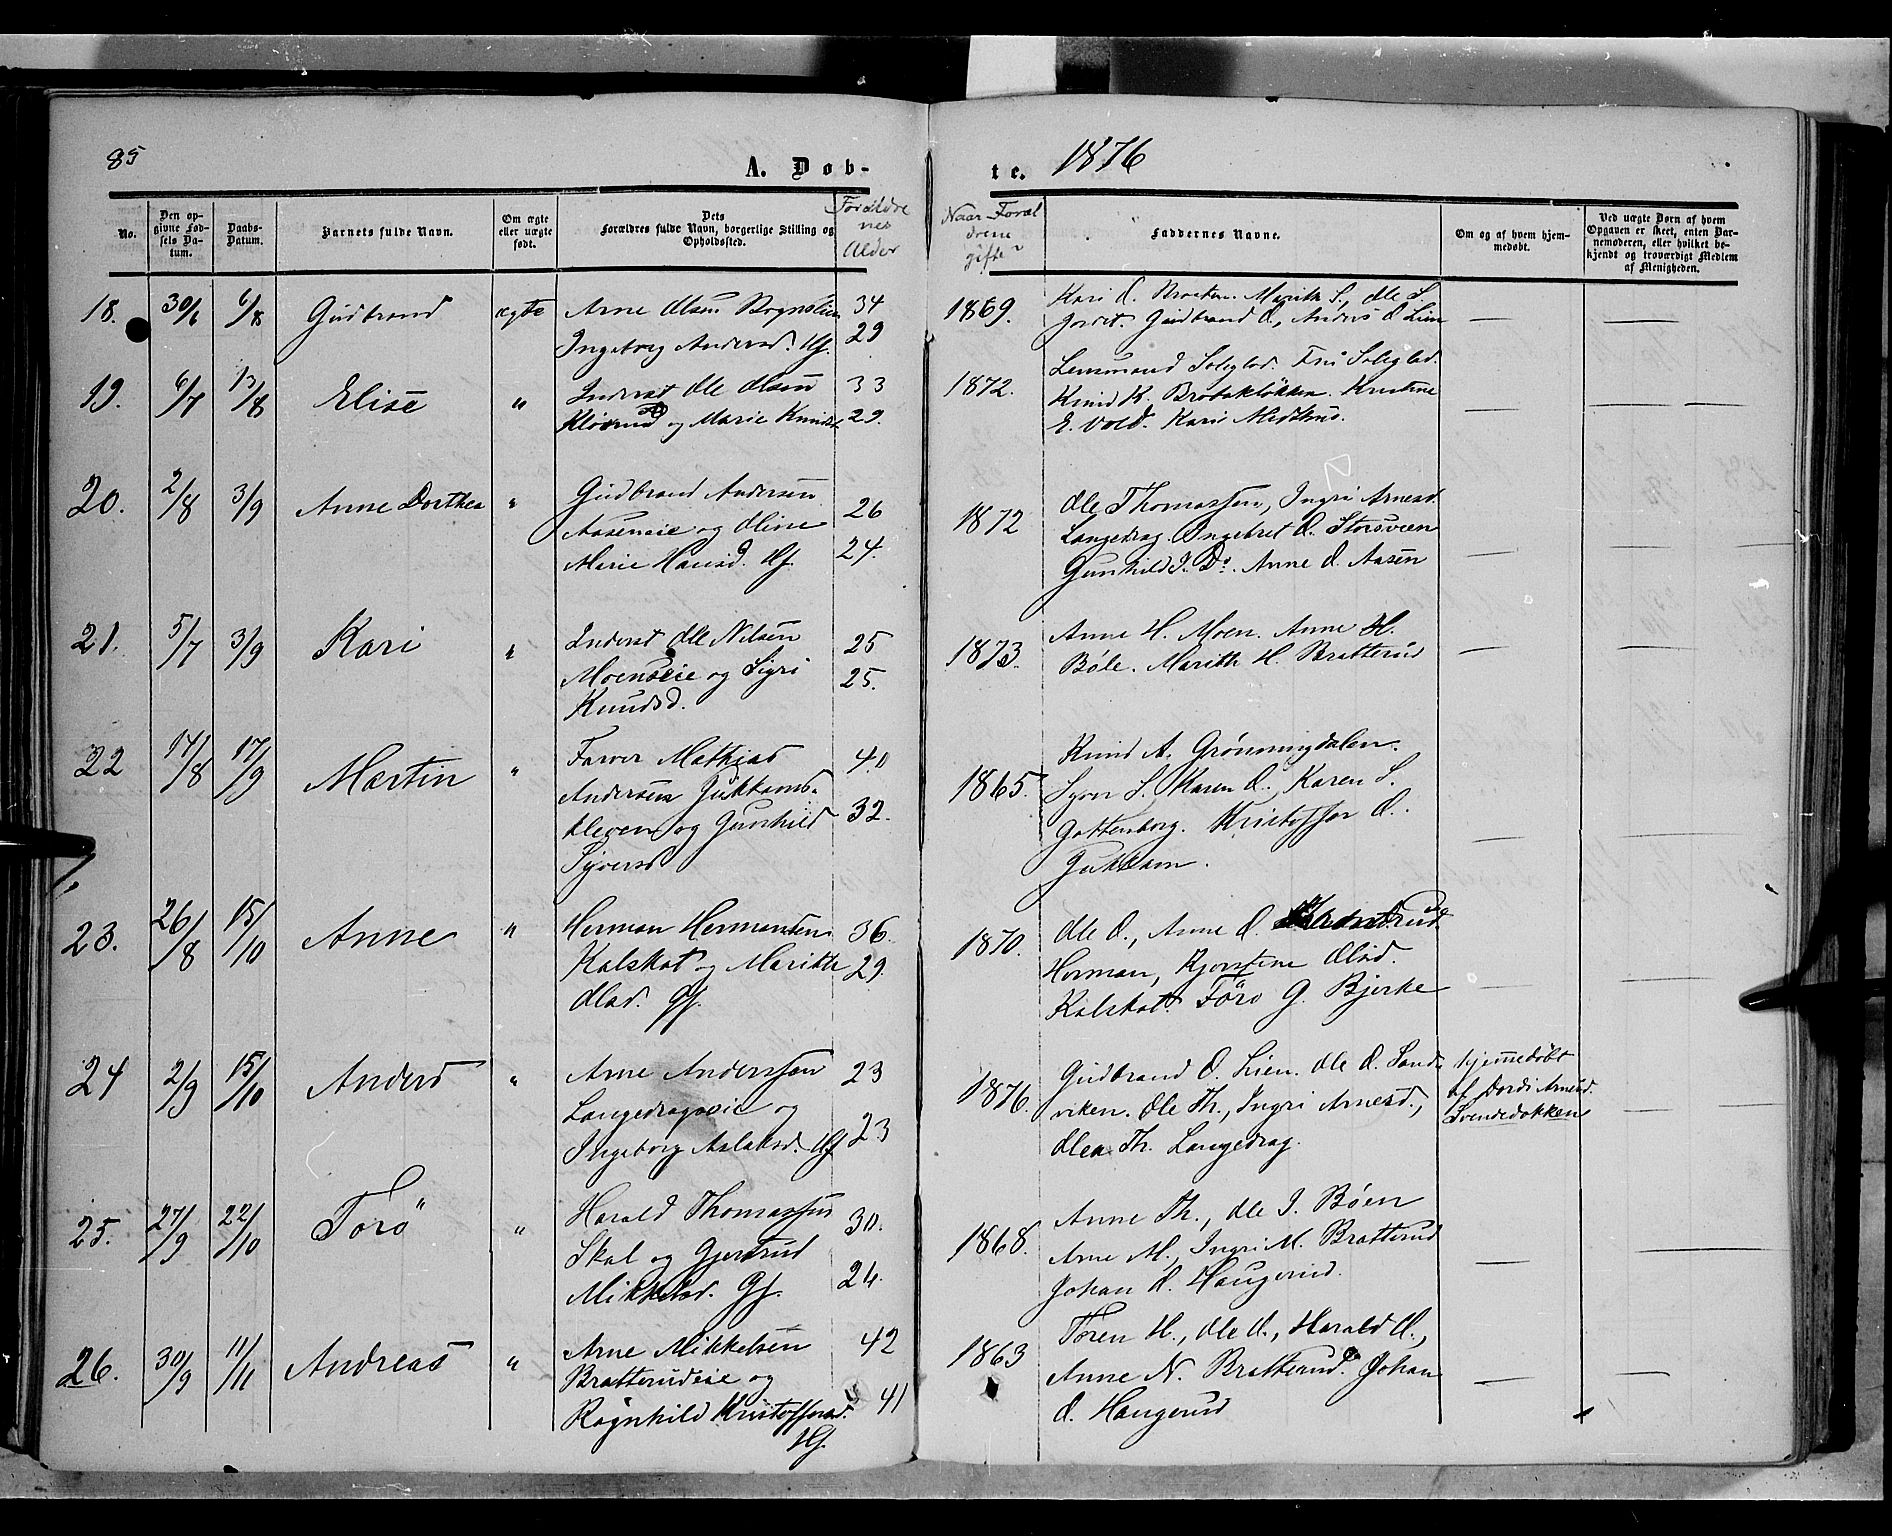 85
A. Døb-
te. 1876
No.
Den opgivne Fødsels Datum.
Daabs-Datum.
Barnets fulde Navn.
Om ægte eller uægte født.
Dets Forældres fulde Navn, borgerlige Stilling og Opholdssted.
Forældrenes Alder
Naar Forældrene gifte
Faddernes Navne.
Om og af hvem hjemmedøbt.
Ved uægte Børn af hvem Opgaven er skeet, enten Barnemoderen, eller hvilket bekjendt og troværdigt Medlem af Menigheden.
18. 30/6 6/8 Gudbrand ægte
Arne Olsen 34
Ingeborg Andersd. Hf. 29
1869.
Kari O. Marith S., Ole S.
Jordet. Gudbrand O., Anders O. Lien
— —
19. 6/7 13/8 Elise "
Inderst Ole Olsen 33
Kløvrud og Marie Knudsd. 29.
1872.
Lensmand Soleglad. Fru Soleglad.
Knud K. Brobakløkken. Kristine
E. Vold. Kari Medthus.
— —
20. 2/8 3/9 Anne Dorthea "
Gudbrand Andersen
Aaseneie og Oline 26
Marie Hansd. Hf. 24.
1872
Ole Thomassen, Ingri Arnesd.
Langedrag. Ingebret O. Storsveen
Gunhild I. Do. Anne O. Aasen
— —
21. 5/7 3/9 Kari "
Inderst Ole Nilsen 25
Moenseie og Sigri 25.
Knudsd.
1873.
Anne H. Moen. Anne H.
Bøle. Marith H. Bratterud
— —
22 14/8 17/9 Martin "
Farver Mathias 40
Andersen Gukhams-
kleven og Gunhild 32.
Syversd
1865.
Knud A. Grønningdalen.
Syver S. Karen O., Karen S.
Gottenborg. Kristoffer O.
Gukham.
— —
23. 26/8 15/10 Anne "
Herman Hermansen 36.
Kolskat og Marith 29.
Olsd. Gf.
1870.
Ole O., Anne O.
Herman, Kjerstine Olsd.
Kolskat. Törö G. Bjerke
— —
24 2/9 15/10 Anders "
Arne Anderssen 23
Langedrageie og
Ingeborg Aslaksd. Hf 23
1876.
Gudbrand O. Lien. Ole O. Sand-
viken. Ole Th., Ingri Arnesd.,
Olea Th. Langedrag.
hjemmedøbt
af Dordi Arnesd.
Svendedokken
—
25. 27/9 22/10 Törö "
Harald Thomassen 30.
Skal og Gjertrud
Mikkelsd. Gf. 24.
1868.
Anne Th., Ole I. Bøen
Arne M., Ingri M. Bratterud
Johan O. Haugerud.
— —
26. 30/9 11/11 Andreas "
Arne Mikkelsen 42
Bratterudeie og
Ragnhild Kristoffersd. 41
Hf.
1863
Toren H., Ole O., Harald O.,
Anne N. Bratterud. Johan
O. Haugerud
— —